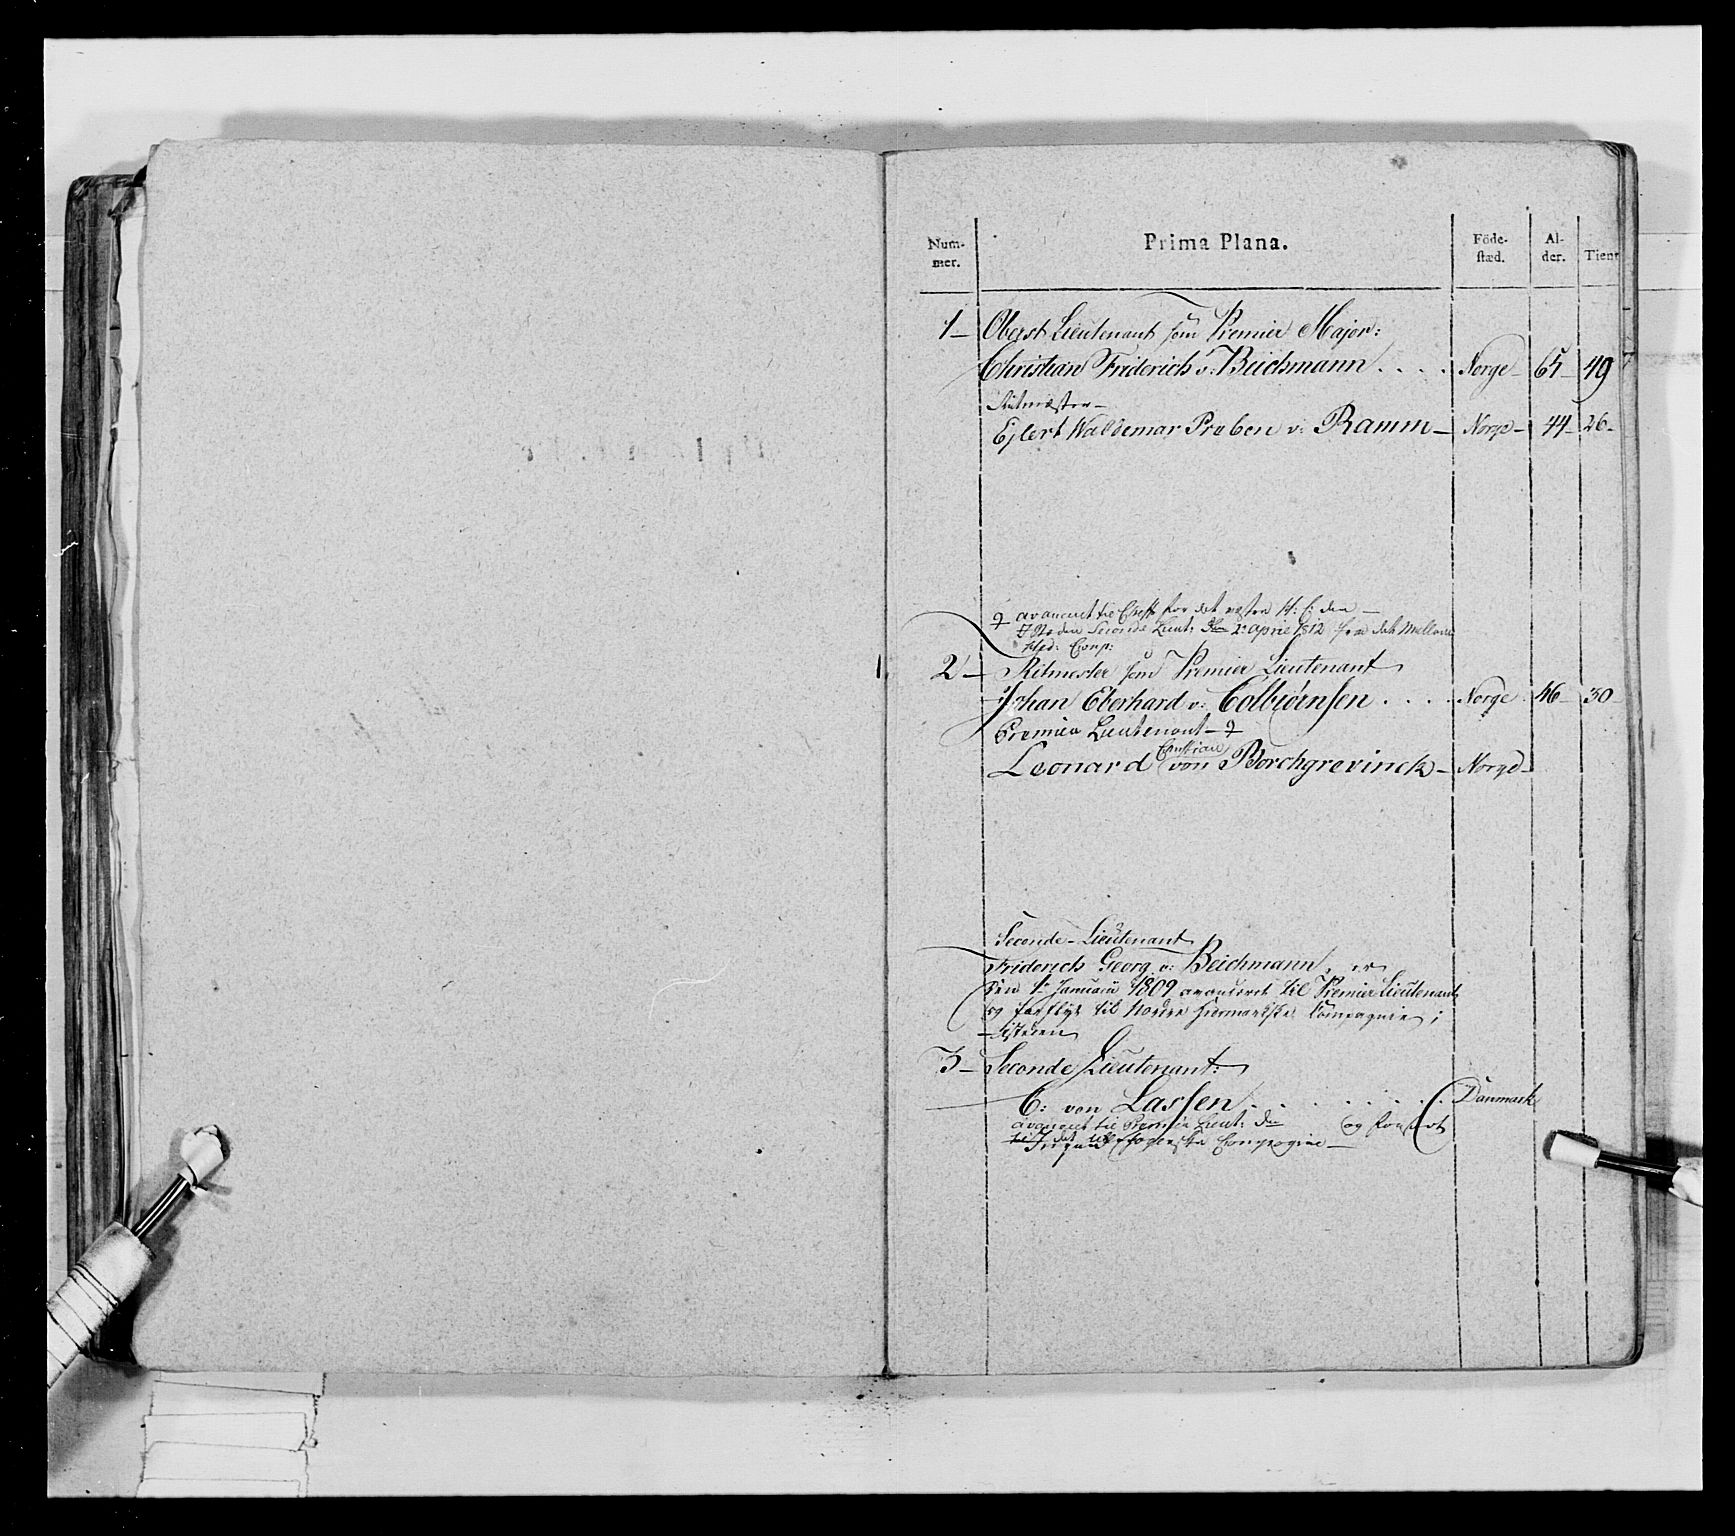 Num-
mer.
Prima Plana.
Föde-
stæd.
Al-
der.
Tient
1 - Oberst Lieutenant som Premier Major:
Christian Friderich v: Beichmann . . . . Norge - 65 - 49
Ritmæster -
Ejlert Waldemar Preben v: Ramm - Norge - 44 - 26 -
♀ avanceret til Cheff for det væstre H: C: den -
den Seconde Lieut: 2: April 1812 fra det
Comp:
2 - Ritmester som Premier Lieutenant
Johan Eberhard v: Colbiörnsen . . . . Norge 46 - 30 -
Premier Lieutenant - ♀
Christian
Leonard von Borchgrevinck - Norge -
Seconde - Lieutenant
Friderich Georg v: Beichmann, er
den 1: Januarii 1809 avanceret til Premier Lieutenant
og forflyt til Nordre Compagnie i
3 - Seconde Lieutenant:
C: von Lassen . . . . . . . Danmark
avanceret til Premier Lieut: den og forsat
til det Compagnie -